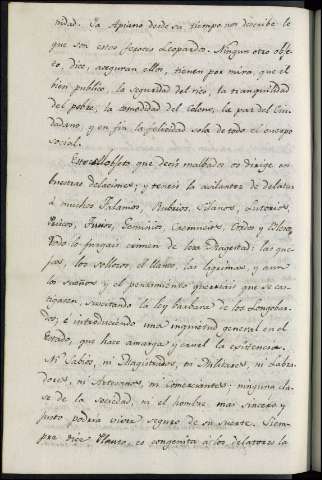 nidad. Ya Apiano desde su tiempo nos describe lo
que son estos feroces Leopardos. Ningun otro obje-
to, dice, aseguran ellos, tienen por mira, que el
bien publico, la seguridad del rico, la tranquilidad
del pobre, la comodidad del Colono, la paz del Ciu-
dadano, y en fin, la felicidad sola de todo el cuerpo
social.
Ese es el objeto que decis malvados os dirige en
vuestras delaciones; y teneis la avilantez de delatar
á muchos Falamos, Rubrios, Silanos, Lutorios,
Priscos, Furios, Geminios, Cremucios, Ordos y
Todo lo juzgais crimen de lesa Magestad: las que-
jas, los sollozos, el llanto, las lagrimas, y aun
los sueños y el pensamiento querriais que se cas-
tigasen, suscitando la ley barbara de los Longobar-
dos, é introduciendo una inquietud general en el
Estado, que hace amarga y cruel la existencia.
Ni Sabios, ni Magistrados, ni Militares, ni Labra-
dores, ni Artesanos, ni Comerciantes; ninguna cla-
se de la sociedad, ni el hombre mas sincero y
justo podria vivir seguro de su suerte. Siem-
pre dice Plauto, es congenita á los delatores la